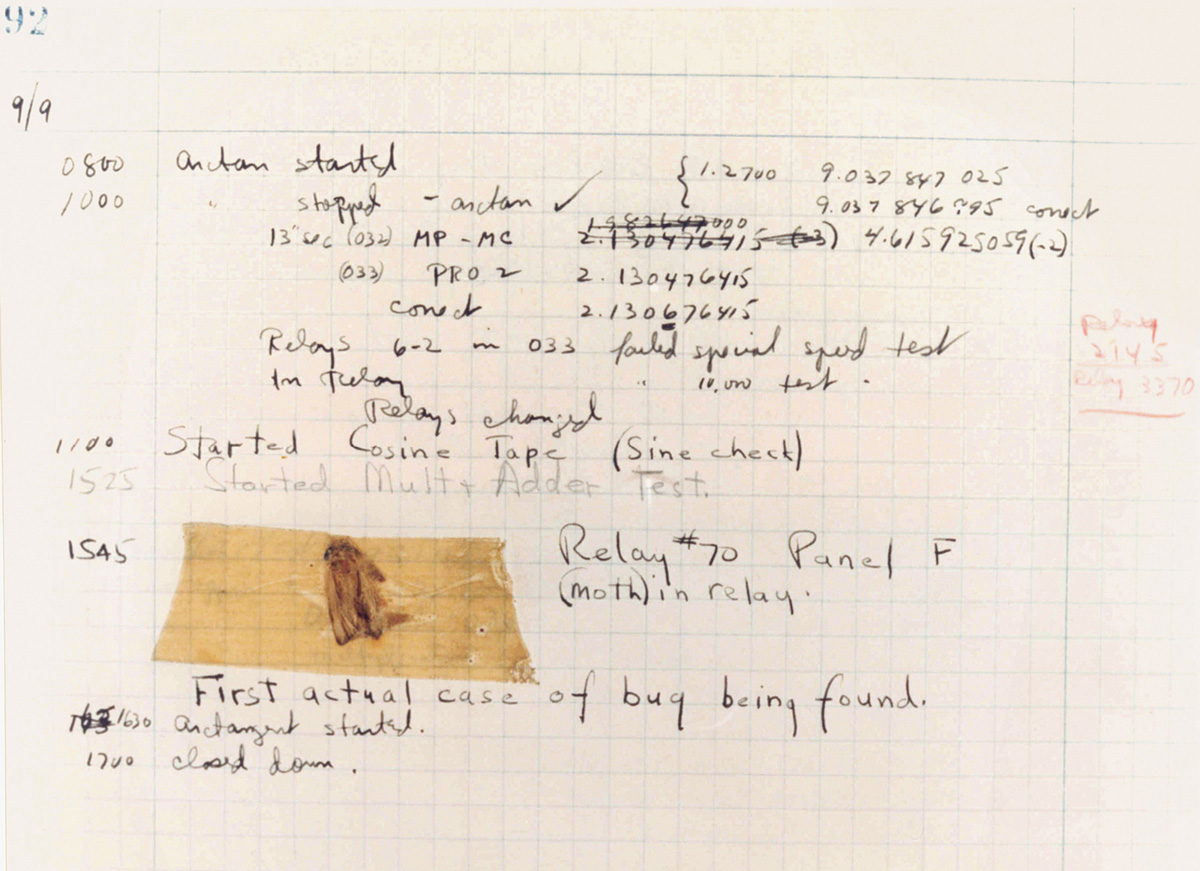 92
9/9
0800 arctan started { 1.2700 9.037 847 025
1000 " stopped - arctan ✓ 9.037 846 795 correct
13"sec (032) MP - MC 2.130476415 (-3) 4.615925059(-2)
(033) PRO 2 2.130476415
correct 2.130676415
Relays 6-2 in 033 failed special speed test
In Relay " 10,000 test .
Relay
2145
Relay 3370
Relays changed
1100 Started Cosine Tape (Sine check)
1525 Started Mult + Adder Test.
1545 Relay #70 Panel F
(moth) in relay.
First actual case of bug being found.
1630 arctangent started.
1700 closed down .